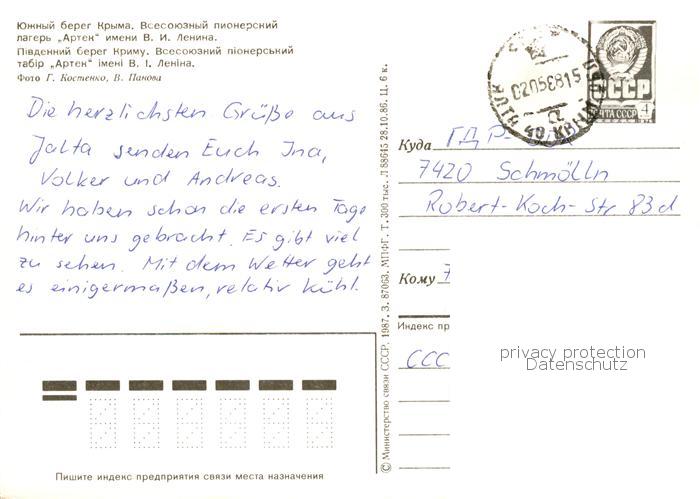 Южный берег Крыма. Всесоюзный пионерский
лагерь „Артек“ имени В. И. Ленина.
Південний берег Криму. Всесоюзний піонерський
табір „Артек“ імені В. І. Леніна.
Фото Г. Костенко, В. Панова
Die herzlichsten Grüße aus
Jalta senden Euch Ina,
Volker und Andreas.
Wir haben schon die ersten Tage
hinter uns gebracht. Es gibt viel
zu sehen. Mit dem Wetter geht
es einigermaßen, relativ kühl.
Пишите индекс предприятия связи места назначения
© Министерство связи СССР. 1987. З. 87063. МПФГ. Т. 300 тыс. Л 88645 28.10.86. Ц. 6 к.
СССР
ПОЧТА СССР 4
Куда ГДР
7420 Schmölln
Robert-Koch-Str 83d
Кому
Индекс пр
ССС
privacy protection
Datenschutz